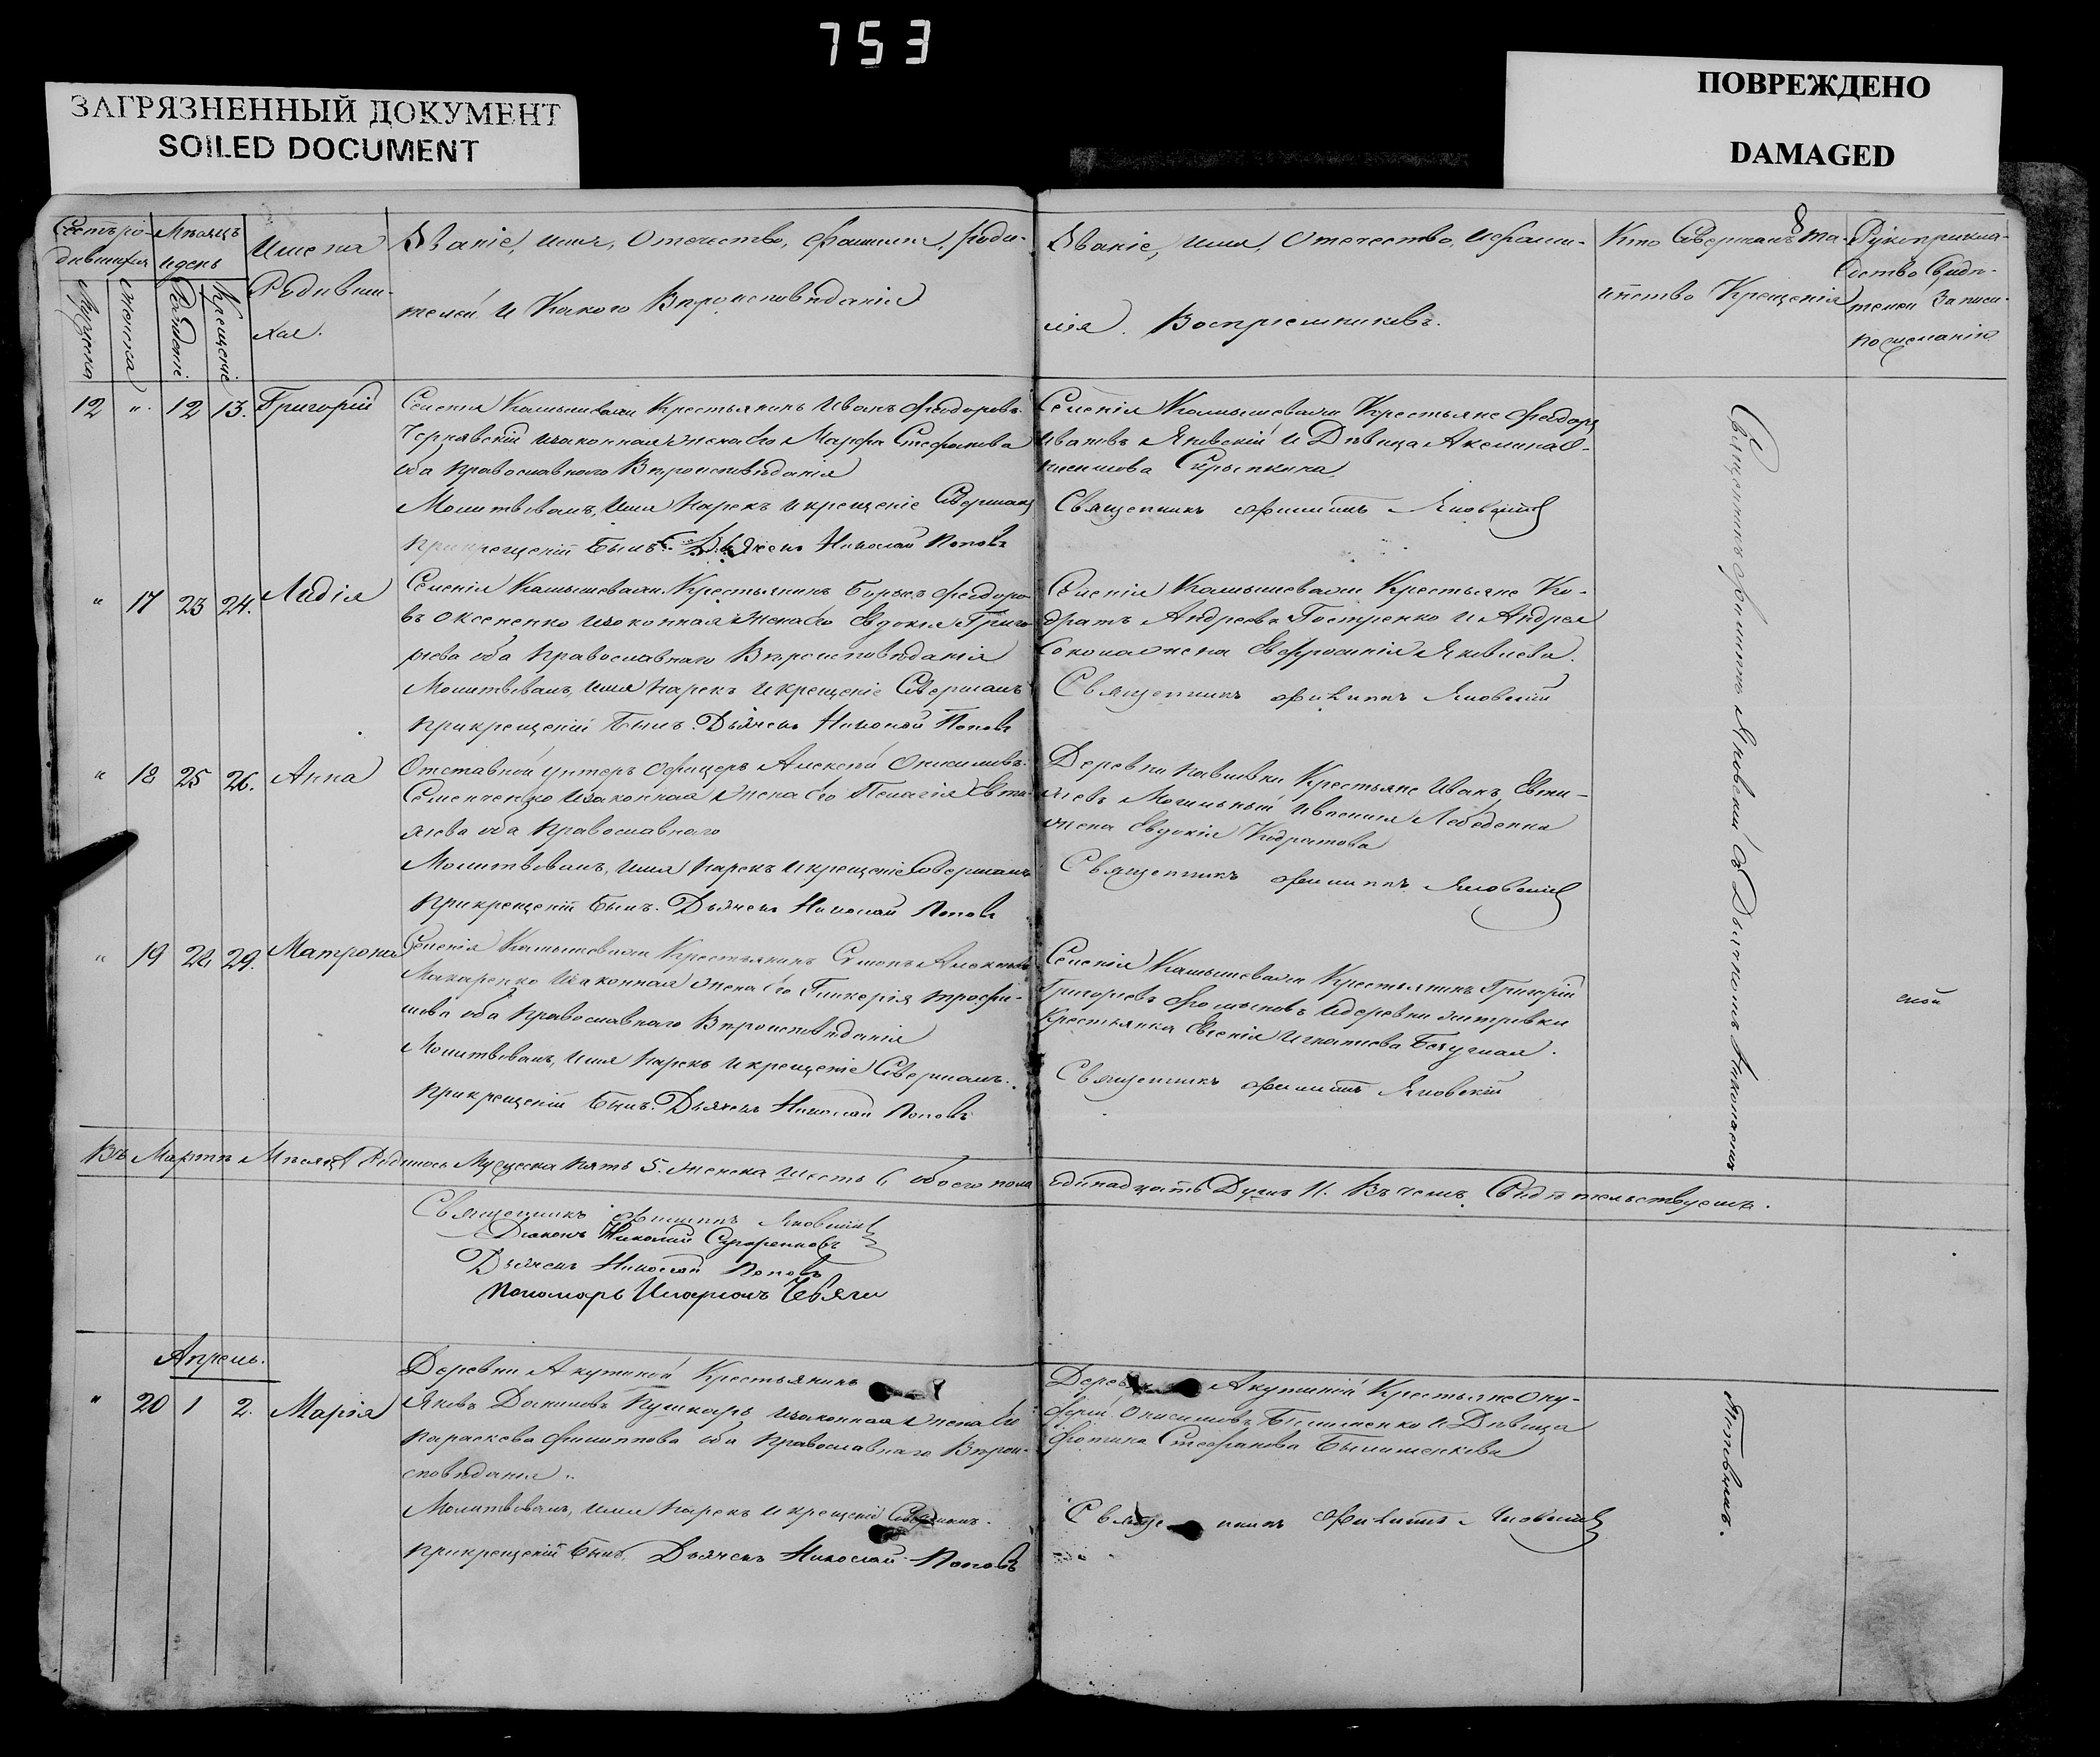 753
ЗАГРЯЗНЕННЫЙ ДОКУМЕНТ
SOILED DOCUMENT
ПОВРЕЖДЕНО
DAMAGED
8
Счетъ ро-
дившихся
Мѣсяцъ
и день
Мужеска
Женска
Рожденіе
Крещеніе
Имена
Родивши-
хся.
Званіе, имя, Отечество, фамилия, роди-
телей и Какого Вѣроисповѣданія
Званіе, имя, Отечество, и фами-
лія. Воспріемниковъ.
Кто Совершалъ Та-
инство Крещенія
Рукоприкла-
дство Свидѣ-
телей Записи
по желанію
12 " 12 13. Григорій
Селенія Камышевахи Крестьянинъ Иванъ Феодоровъ
Чернявскій и законная жена его Марфа Стефанова
оба православного Вѣроисповѣданія
Молитвовалъ, имя нарекъ и крещеніе Совершалъ
При крещеніи былъ: Дьячекъ Николай Поповъ
Селенія Камышевахи Крестьяне Феодоръ
Ивановъ Яневскій и Дѣвица Акелина
Скрыпкина
Священникъ Филиппъ Яновскій
" 17 23 24. Лидія
Селенія Камышевахи Крестьянинъ Борисъ Феодоро-
въ Оксененко и законная жена его Евдокія Григо-
рьева оба православного Вѣроисповѣданія
Молитвовалъ, имя нарекъ и крещеніе Совершалъ
При крещеніи былъ: Дьячекъ Николай Поповъ
Селенія Камышевахи Крестьяне Ко-
дратъ Андреевъ Гостренко и Андрея
Сокола жена Евфросинія Яковлева.
Священникъ Филиппъ Яновскій
" 18 25 26. Анна
Отставной унтеръ офицеръ Алексѣй Онисимовъ
Семенченко и законная жена его Пелагія Евти-
хіева оба православнаго
Молитвовалъ, имя нарекъ и крещеніе Совершалъ
При крещеніи былъ: Дьячекъ Николай Поповъ
Деревни Павловки Крестьяне Иванъ Евти-
хіевъ Могильный и Василія Лебеденка
жена Евдокія Кодратова
Священникъ Филиппъ Яновскій
" 19 28 29. Матрона
Селенія Камышевахи Крестьянинъ Симонъ Алексѣевъ
Макаренко и законная жена его Гликерія Трофи-
мова оба православнаго Вѣроисповѣданія
Молитвовалъ, имя нарекъ и крещеніе Совершалъ.
При крещеніи былъ: Дьячекъ Николай Поповъ
Селенія Камышевахи Крестьянинъ Григорій
Григорьевъ и деревни
Крестьянка Евгенія Игнатіева
Священникъ Филиппъ Яновскій
Священникъ Филиппъ Яновскій съ Дьякономъ
Въ Мартѣ Мѣсяцѣ Родилось Мужеска пять 5. женска шесть 6 обоего пола единадцать Душъ 11. Въ чемъ Свидѣтельствуемъ.
Священникъ Филиппъ Яновскій
Діаконъ Николай
Дьячекъ Николай Поповъ
Пономарь Иларіонъ
Апрель.
" 20 1 2. Марія
Деревни Акутиной Крестьянинъ
Яковъ Даниловъ Пушкарь и законная жена его
Параскева Филиппова оба православнаго Вѣрои-
сповѣданія.
Молитвовалъ, имя нарекъ и крещеніе Совершалъ.
При крещеніи былъ: Дьячекъ Николай Поповъ
Акутиной Крестьяне Ону-
фрій Онисимовъ и Дѣвица
Фотина Стефанова
Священникъ Филиппъ Яновскій